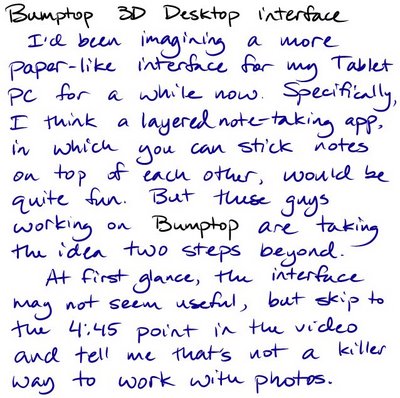 Bumptop 3D Desktop interface
I'd been imagining a more
paper-like interface for my Tablet
PC for a while now. Specifically,
I think a layered note-taking app,
in which you can stick notes
on top of each other, would be
quite fun. But these guys
working on Bumptop are taking
the idea two steps beyond.
At first glance, the interface
may not seem useful, but skip to
the 4:45 point in the video
and tell me that's not a killer
way to work with photos.